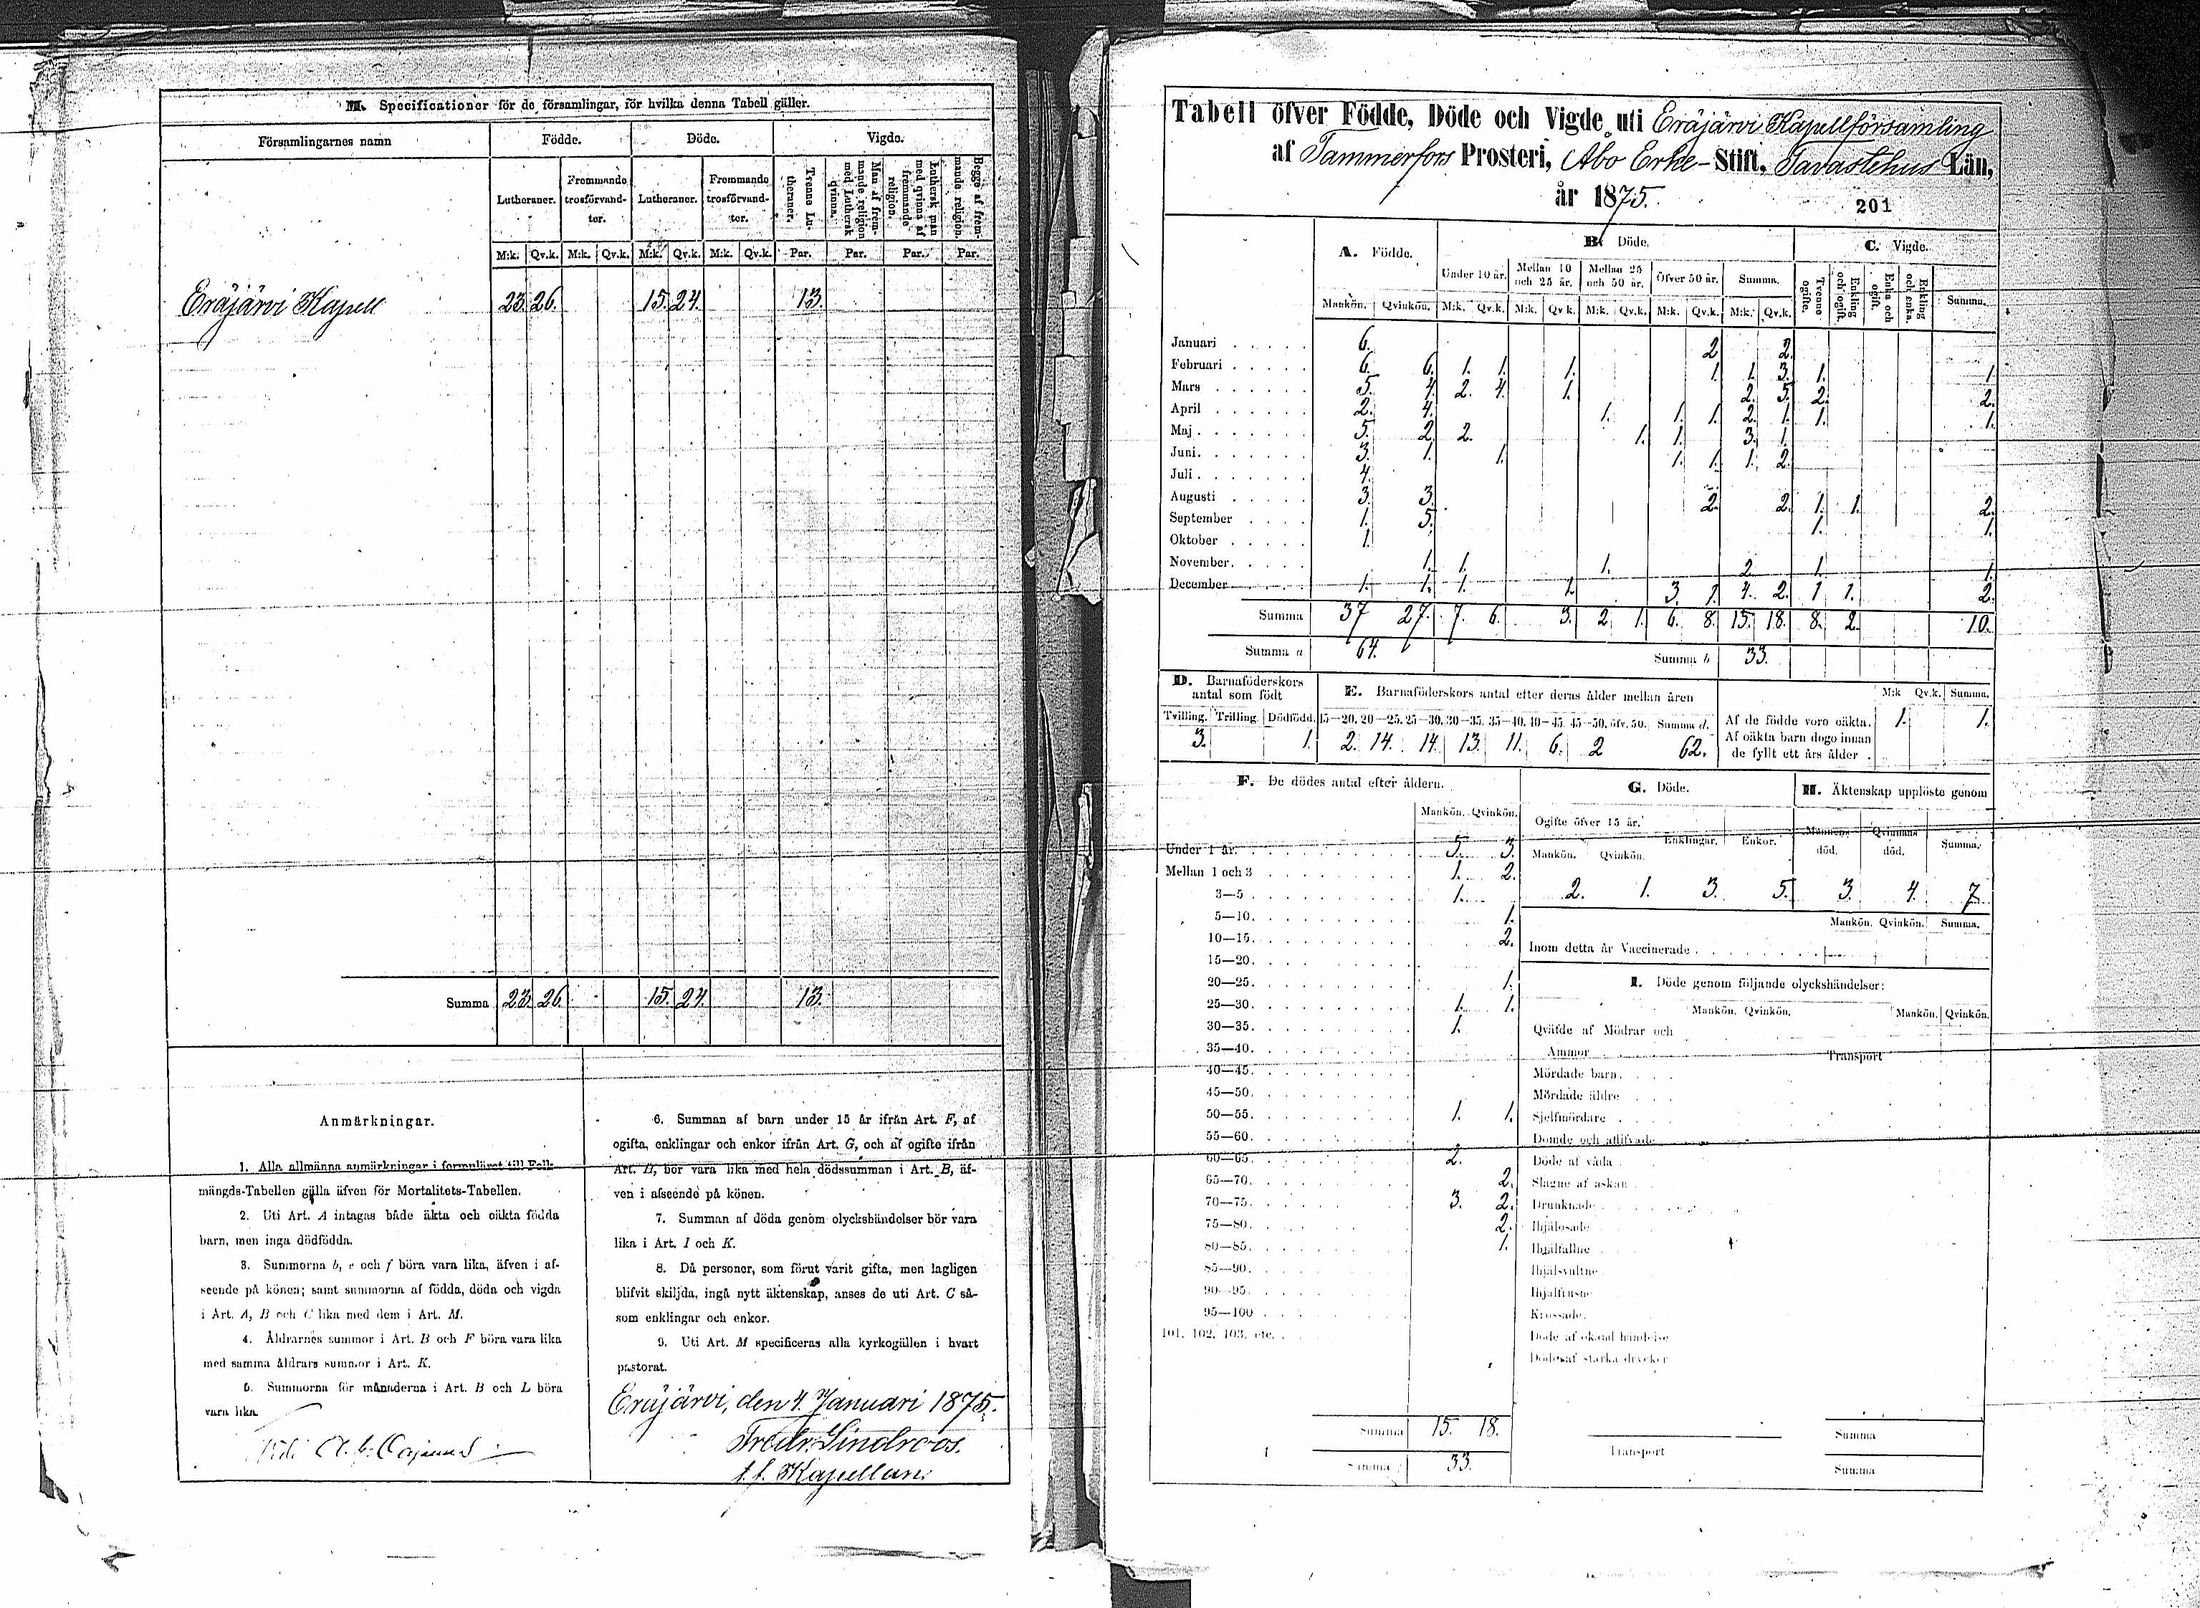 M. Specificationer för de församlingar, för hvilka denna Tabell gäller.
Församlingarnes namn Födde. Döde. Vigde.
Lutheraner. Fremmande trosförvandter. Lutheraner. Fremmande trosförvandter. Tvenne Lutheraner. Man af fremmande religion med Luthersk qvinna. Luthersk man med qvinna af fremmande religion. Begge af fremmande religion.
M:k. Qv.k. M:k. Qv.k. M:k. Qv.k. M:k. Qv.k. Par. Par. Par. Par.
Eräjärvi Kapell 23. 26. 15. 24. 13.
Summa 23. 26. 15. 24. 13.
Anmärkningar.
1. Alla allmänna anmärkningar i formuläret till Folk-
mängds-Tabellen gälla äfven för Mortalitets-Tabellen.
2. Uti Art. A intagas både äkta och oäkta födda
barn, men inga dödfödda.
3. Summorna b, e och f böra vara lika, äfven i af-
seende på könen; samt summorna af födda, döda och vigda
i Art. A, B och C lika med dem i Art. M.
4. Åldrarnes summor i Art. B och F böra vara lika
med samma åldrars summor i Art. K.
5. Summorna för månaderna i Art. B och L böra
vara lika.
6. Summan af barn under 15 år ifrån Art. F, af
ogifta, enklingar och enkor ifrån Art. G, och af ogifte ifrån
Art. H, bör vara lika med hela dödssumman i Art. B, äf-
ven i afseende på könen.
7. Summan af döda genom olyckshändelser bör vara
lika i Art. I och K.
8. Då personer, som förut varit gifta, men lagligen
blifvit skiljda, ingå nytt äktenskap, anses de uti Art. C så-
som enklingar och enkor.
9. Uti Art. M specificeras alla kyrkogällen i hvart
pastorat.
Eräjärvi, den 4. Januari 1875.
Fredr. Lindroos.
t.f. Kapellan.
Tabell öfver Födde, Döde och Vigde uti Eräjärvi Kapellförsamling
af Tammerfors Prosteri, Åbo Erke- Stift, Tavastehus Län,
år 1875.
201
A. Födde. B. Döde. C. Vigde.
Under 10 år. Mellan 10 och 25 år. Mellan 25 och 50 år. Öfver 50 år. Summa. Tvenne ogifte. Enkling och ogift. Enka och ogift. Enkling och enka. Summa.
Mankön. Qvinkön. M:k. Qv.k. M:k. Qv.k. M:k. Qv.k. M:k. Qv.k. M:k. Qv.k.
Januari 6. 2 2.
Februari 6. 6. 1. 1. 1. 1. 1. 3. 1. 1.
Mars 5. 4. 2. 4. 1. 2. 5. 2. 2.
April 2. 4. 1. 1. 1. 2. 1. 1. 1.
Maj 5. 2 2. 1. 1. 3. 1.
Juni 3. 1. 1. 1. 1. 1. 2.
Juli 4.
Augusti 3. 3. 2. 2. 1. 1. 2.
September 1. 5. 1. 1.
Oktober 1.
November 1. 1. 1. 2. 1. 1.
December 1. 1. 1. 1. 3. 1. 4. 2. 1 1. 2.
Summa 37 27. 7. 6. 3. 2. 1. 6. 8. 15. 18. 8. 2. 10.
Summa a 64. Summa b 33.
D. Barnaföderskors antal som födt
Tvilling. Trilling. Dödfödd.
3. 1.
E. Barnaföderskors antal efter deras ålder mellan åren
15—20. 20—25. 25—30. 30—35. 35—40. 40—45. 45—50. öfv. 50. Summa d.
2. 14. 14. 13. 11. 6. 2 62.
M:k Qv.k. Summa.
Af de födde voro oäkta. 1. 1.
Af oäkta barn dogo innan
de fyllt ett års ålder .
F. De dödes antal efter åldern.
Mankön. Qvinkön.
Under 1 år. 5. 3.
Mellan 1 och 3 1. 2.
3—5 1.
5—10. 1.
10—15. 2.
15—20.
20—25. 1.
25—30. 1. 1.
30—35. 1.
35—40.
40—45.
45—50.
50—55. 1. 1.
55—60.
60—65. 2.
65—70. 2.
70—75. 3. 2.
75—80. 2.
80—85. 1.
85—90.
90—95.
95—100
101, 102, 103, etc.
Summa 15. 18.
Summa 33.
G. Döde.
Ogifte öfver 15 år. Enklingar. Enkor.
Mankön. Qvinkön.
2. 1. 3. 5.
H. Äktenskap upplöste genom
Mannens död. Qvinnans död. Summa.
3. 4. 7.
Mankön. Qvinkön. Summa.
Inom detta år Vaccinerade
I. Döde genom följande olyckshändelser:
Mankön. Qvinkön. Mankön. Qvinkön.
Qväfde af Mödrar och
Ammor Transport
Mördade barn.
Mördade äldre
Sjelfmördare
Dömde och aflifvade
Döde af våda
Slagne af åskan
Drunknade
Ihjälosade
Ihjälfallne
Ihjälsvultne
Ihjälfrusne
Krossade.
Döde af okänd händelse
Döde af starka drycker
Summa
Transport
Summa